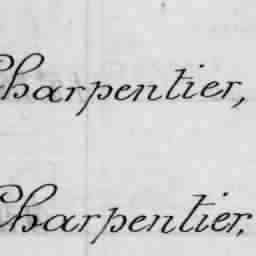 Charpentier,
Charpentier.